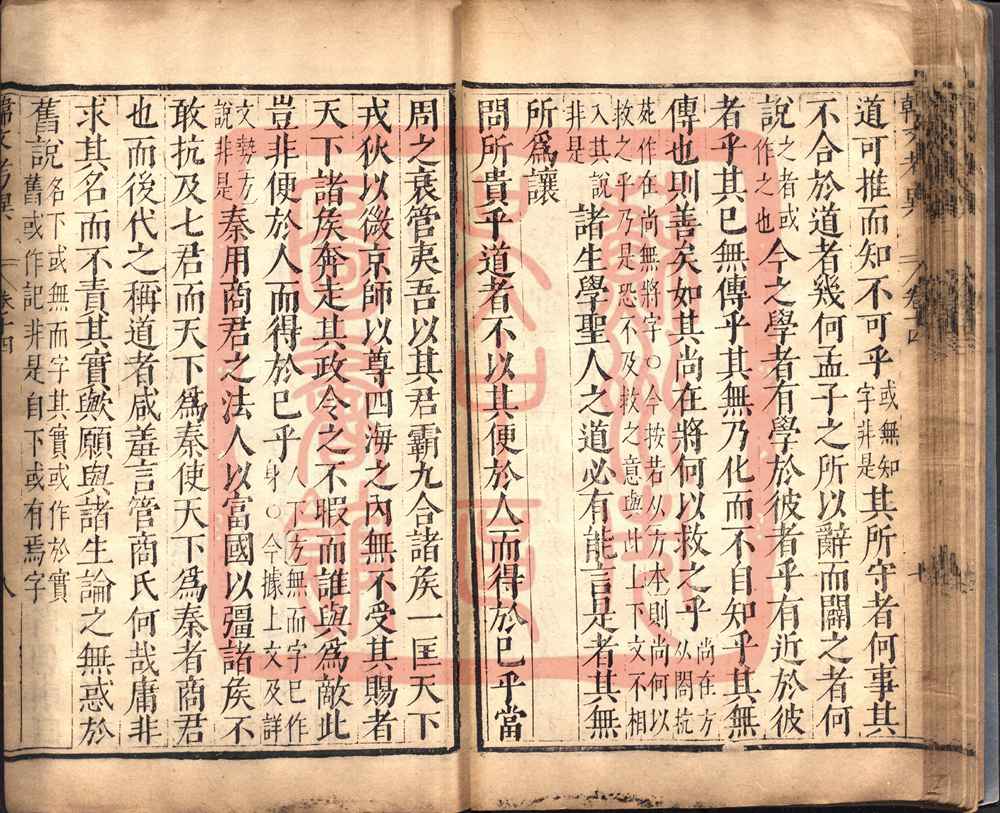 道可推而知不可乎或無知字非是其所守者何事其
不合於道者幾何孟子之所以辭而闢之者何
說之者或作之也今之學者有學於彼者乎有近於彼
者乎其已無傳乎其無乃化而不自知乎其無
傳也則善矣如其尚在將何以救之乎尚在方从閣杭
苑作在尚無將字○今按若从方本則尚何以
救之乎乃是恐不及救之意與此上下文不相
入其說非是諸生學聖人之道必有能言是者其無
所爲讓
問所貴乎道者不以其便於人而得於已乎當
周之衰管夷吾以其君霸九合諸矦一匡天下
戎狄以微京師以尊四海之內無不受其賜者
天下諸矦奔走其政令之不暇而誰與爲敵此
豈非便於人而得於已乎人下方無而字巳作身○今據上文及詳
文勢方說非是秦用商君之法人以富國以彊諸矦不
敢抗及七君而天下爲秦使天下爲秦者商君
也而後代之稱道者咸羞言管商氏何哉庸非
求其名而不責其實歟願與諸生論之無惑於
舊說名下或無而字其實或作於實舊或作記非是自下或有焉字